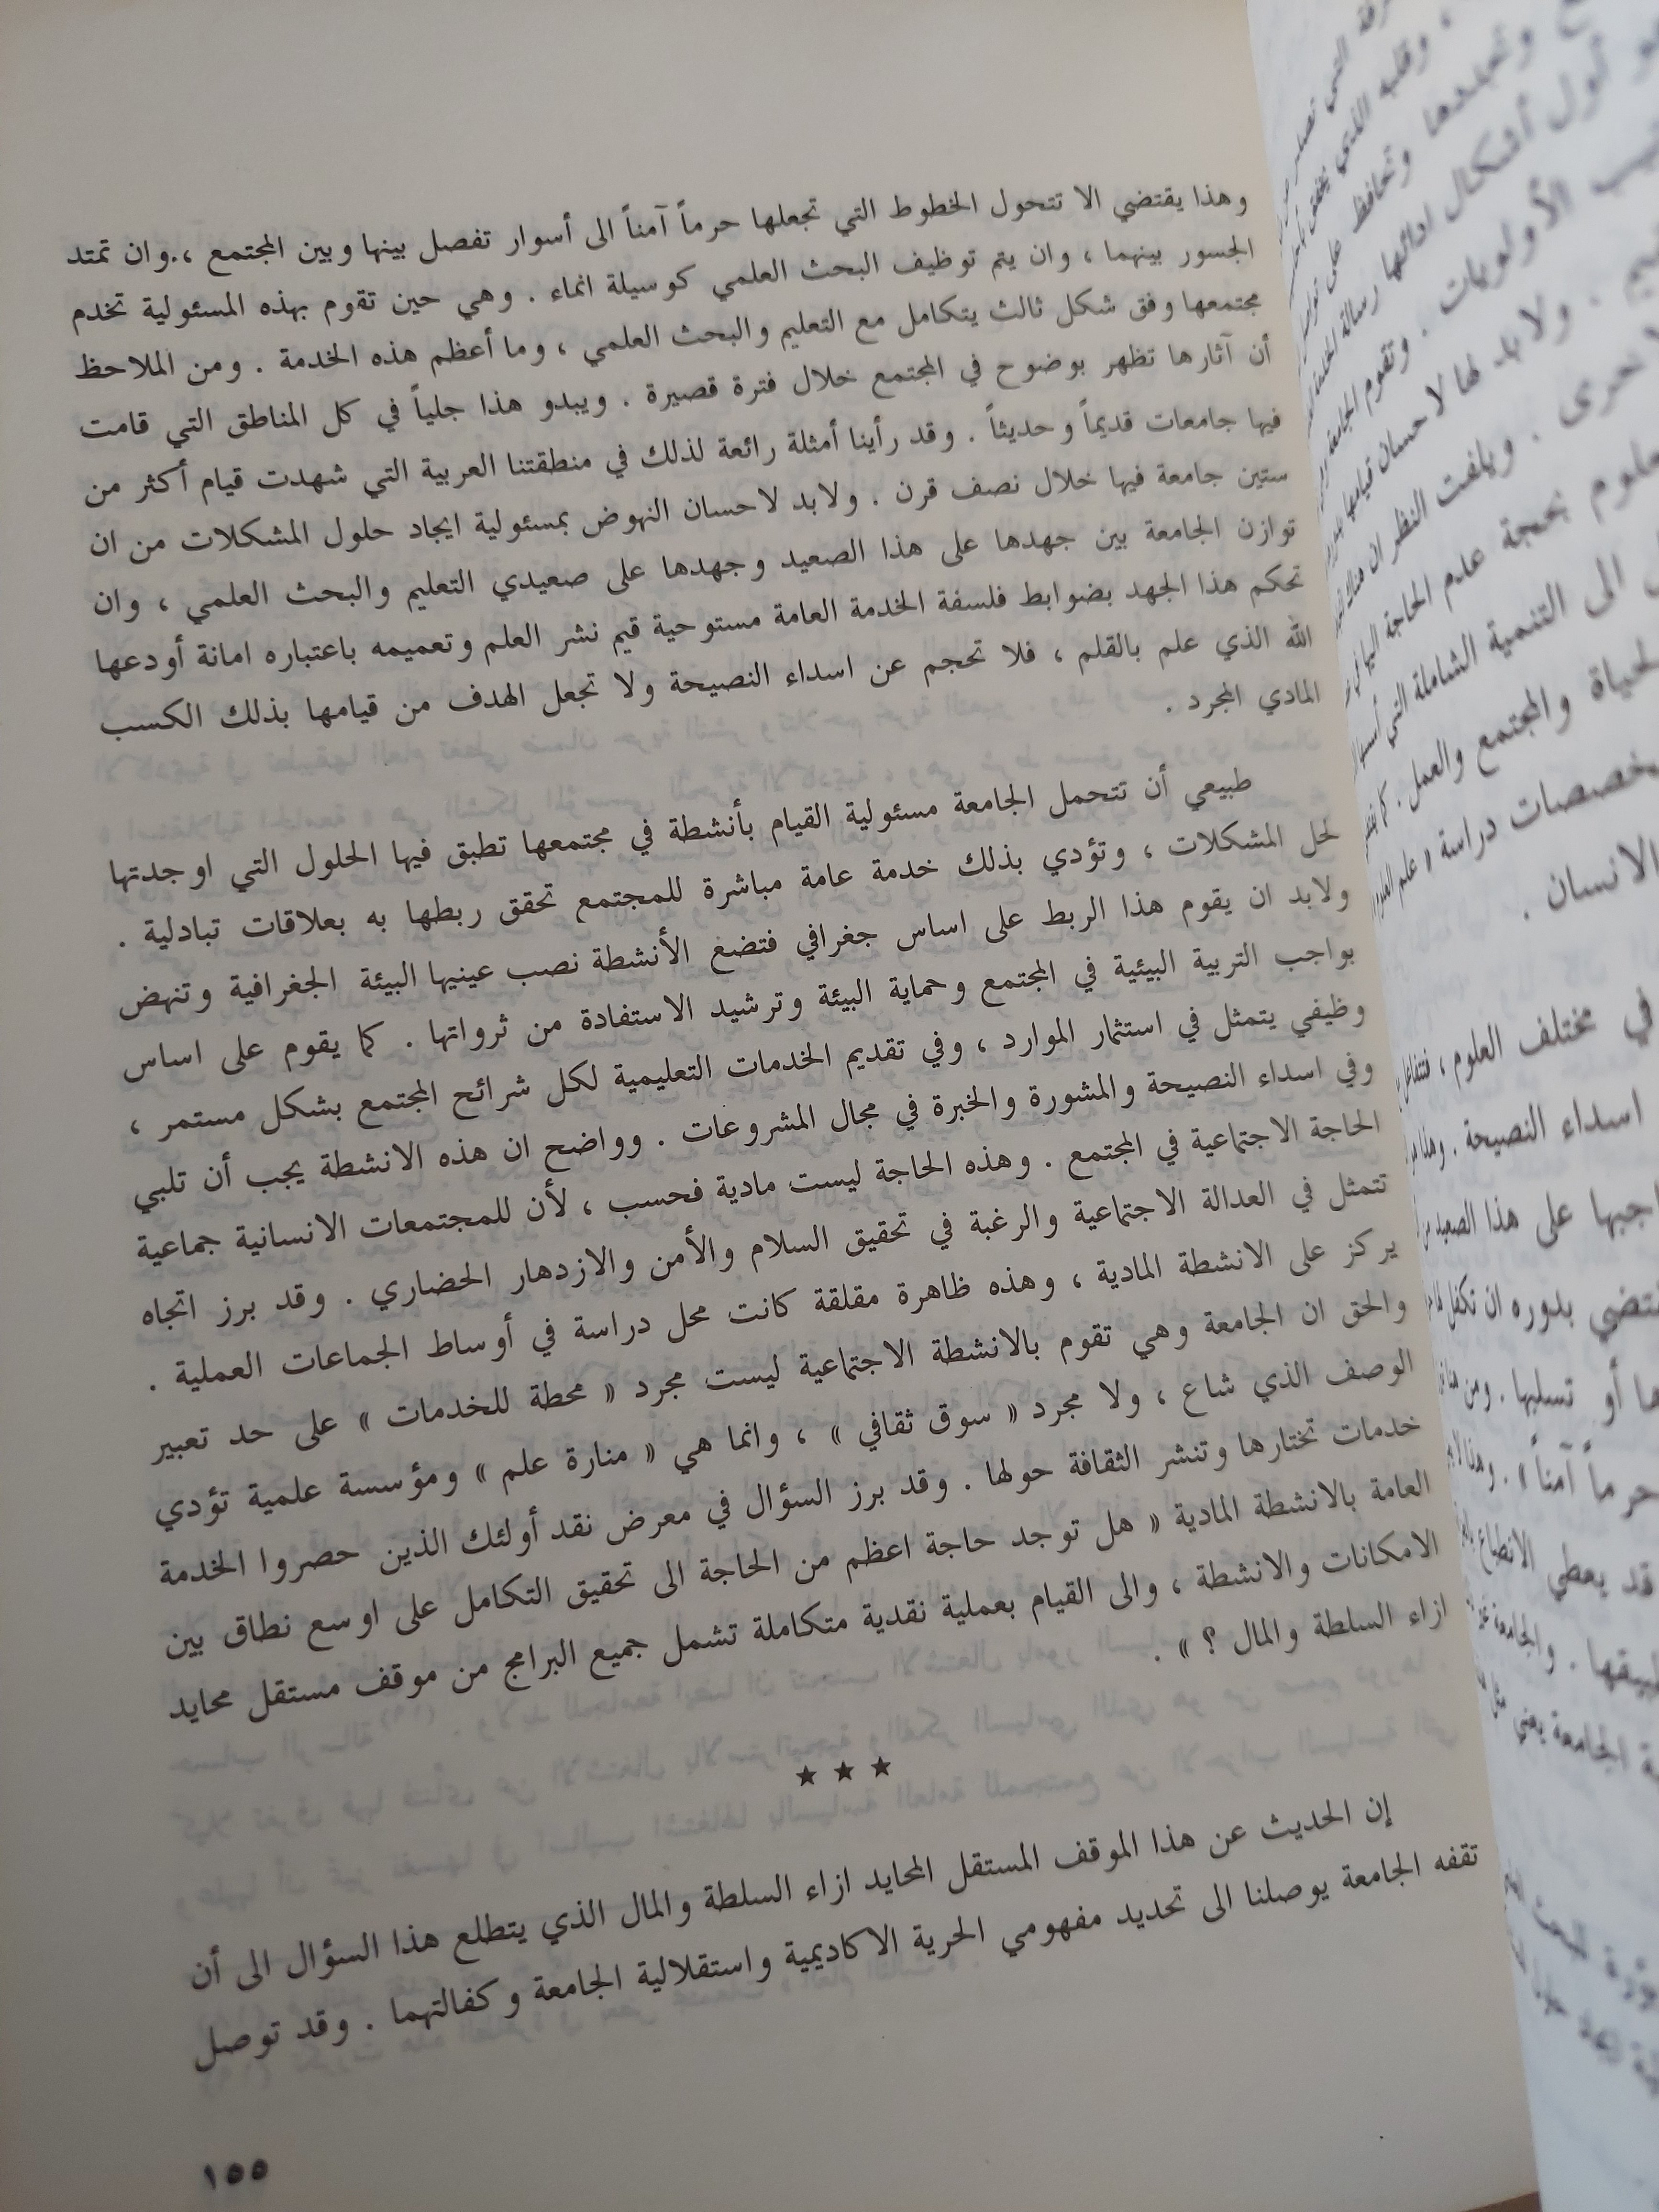 وهذا يقتضي الا تتحول الخطوط التي تجعلها حرماً آمناً الى أسوار تفصل بينها وبين المجتمع ،.وان تمتد
الجسور بينهما ، وان يتم توظيف البحث العلمي كوسيلة انماء . وهي حين تقوم بهذه المسئولية تخدم
مجتمعها وفق شكل ثالث يتكامل مع التعليم والبحث العلمي ، وما أعظم هذه الخدمة . ومن الملاحظ
أن آثارها تظهر بوضوح في المجتمع خلال فترة قصيرة . ويبدو هذا جلياً في كل المناطق التي قامت
فيها جامعات قديماً وحديثاً . وقد رأينا أمثلة رائعة لذلك في منطقتنا العربية التي شهدت قيام أكثر من
ستين جامعة فيها خلال نصف قرن . ولابد لاحسان النهوض بمسئولية ايجاد حلول المشكلات من ان
توازن الجامعة بين جهدها على هذا الصعيد وجهدها على صعيدي التعليم والبحث العلمي ، وان
تحكم هذا الجهد بضوابط فلسفة الخدمة العامة مستوحية قيم نشر العلم وتعميمه باعتباره امانة أودعها
الله الذي علم بالقلم ، فلا تحجم عن اسداء النصيحة ولا تجعل الهدف من قيامها بذلك الكسب
المادي المجرد .
طبيعي أن تتحمل الجامعة مسئولية القيام بأنشطة في مجتمعها تطبق فيها الحلول التي اوجدتها
لحل المشكلات ، وتؤدي بذلك خدمة عامة مباشرة للمجتمع تحقق ربطها به بعلاقات تبادلية .
ولابد ان يقوم هذا الربط على اساس جغرافي فتضع الأنشطة نصب عينيها البيئة الجغرافية وتنهض
بواجب التربية البيئية في المجتمع وحماية البيئة وترشيد الاستفادة من ثرواتها . كما يقوم على اساس
وظيفي يتمثل في استثمار الموارد ، وفي تقديم الخدمات التعليمية لكل شرائح المجتمع بشكل مستمر ،
وفي اسداء النصيحة والمشورة والخبرة في مجال المشروعات . وواضح ان هذه الانشطة يجب أن تلبي
الحاجة الاجتماعية في المجتمع . وهذه الحاجة ليست مادية فحسب ، لأن للمجتمعات الانسانية جماعية
تتمثل في العدالة الاجتماعية والرغبة في تحقيق السلام والأمن والازدهار الحضاري . وقد برز اتجاه
يركز على الانشطة المادية ، وهذه ظاهرة مقلقة كانت محل دراسة في أوساط الجماعات العملية .
والحق ان الجامعة وهي تقوم بالانشطة الاجتماعية ليست مجرد « محطة للخدمات » على حد تعبير
الوصف الذي شاع ، ولا مجرد « سوق ثقافي » ، وانما هي « منارة علم » ومؤسسة علمية تؤدي
خدمات تختارها وتنشر الثقافة حولها . وقد برز السؤال في معرض نقد أولئك الذين حصروا الخدمة
العامة بالانشطة المادية « هل توجد حاجة اعظم من الحاجة الى تحقيق التكامل على اوسع نطاق بين
الامكانات والانشطة ، والى القيام بعملية نقدية متكاملة تشمل جميع البرامج من موقف مستقل محايد
ازاء السلطة والمال ؟ » .
★ ★ ★
إن الحديث عن هذا الموقف المستقل المحايد ازاء السلطة والمال الذي يتطلع هذا السؤال الى أن
تقفه الجامعة يوصلنا الى تحديد مفهومي الحرية الاكاديمية واستقلالية الجامعة وكفالتهما . وقد توصل
١٥٥
وتحافظ على
أول أشكال ادائها رسالة
الأولويات . وتقوم الجامعة
ولابد لها لاحسان قيامها
ويلفت النظر ان هناك
بحجة عدم الحاجة اليها في
الى التنمية الشاملة التي
والمجتمع والعمل . كما
دراسة « علم
الانسان .
في مختلف العلوم ،
اسداء النصيحة .
على هذا الصعيد
بدوره ان تكفل
أو تسلبها . ومن هنا
حرماً آمناً » .
قد يعطي الانطباع
والجامعة
الجامعة يعني مثل